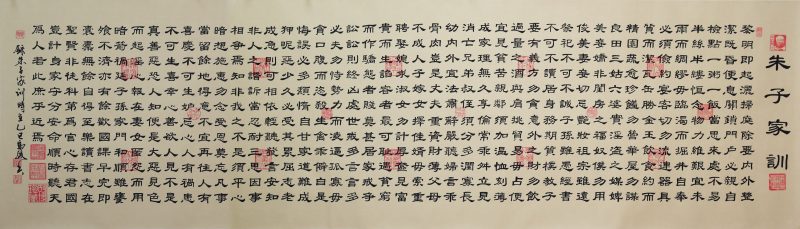 朱子家訓
黎明即起灑掃庭除要內外整
潔既昏便息關鎖門戶必親自
檢點一粥一飯當思來處不易
半絲半縷恆念物力維艱宜未
雨而綢繆毋臨渴而掘井自奉
必須儉約宴客切勿流連器具
質而潔瓦缶勝金玉飲食約而
精園蔬愈珍饈勿營華屋勿謀
良田三姑六婆實淫盜之媒婢
美妾嬌非閨房之福奴僕勿用
俊美妻妾切忌艷妝祖宗雖遠
祭祀不可不誠子孫雖愚經書
不可不讀居身務期質樸教子
要有義方勿貪意外之財勿飲
過量之酒與肩挑貿易毋占便
宜見貧苦親鄰須加溫恤刻薄
成家理無久享倫常乖舛立見
消亡兄弟叔侄須分多潤寡長
幼內外宜法肅辭嚴聽婦言乖
骨肉豈是丈夫重資財薄父母
不成人子嫁女擇佳婿毋索重
聘娶媳求淑女勿計厚奩見富
貴而生諂容者最可恥遇貧窮
而作驕態者賤莫甚居家戒爭
訟訟則終凶處世戒多言言多
必失勿恃勢力而凌逼孤寡毋
貪口腹而恣殺生禽乖僻自是
悔誤必多頹惰自甘家道難成
狎昵惡少久必受其累屈志老
成急則可相依輕聽發言安知
非人之譖訴當忍耐三思因事
相爭焉知非我之不是須平心
暗想施惠勿念受恩莫忘凡事
當留餘地得意不宜再往人有
喜慶不可生妒忌心人有禍患
不可生喜幸心善欲人見不是
真善惡恐人知便是大惡見色
而起淫心報在妻女匿怨而用
暗箭禍延子孫家門和順雖饔
飧不濟亦有餘歡國課早完即
囊橐無餘自得至樂讀書志在
聖賢非徒科第為官心存君國
豈計身家守分安命順時聽天
為人若此庶乎近焉
錄朱子家訓